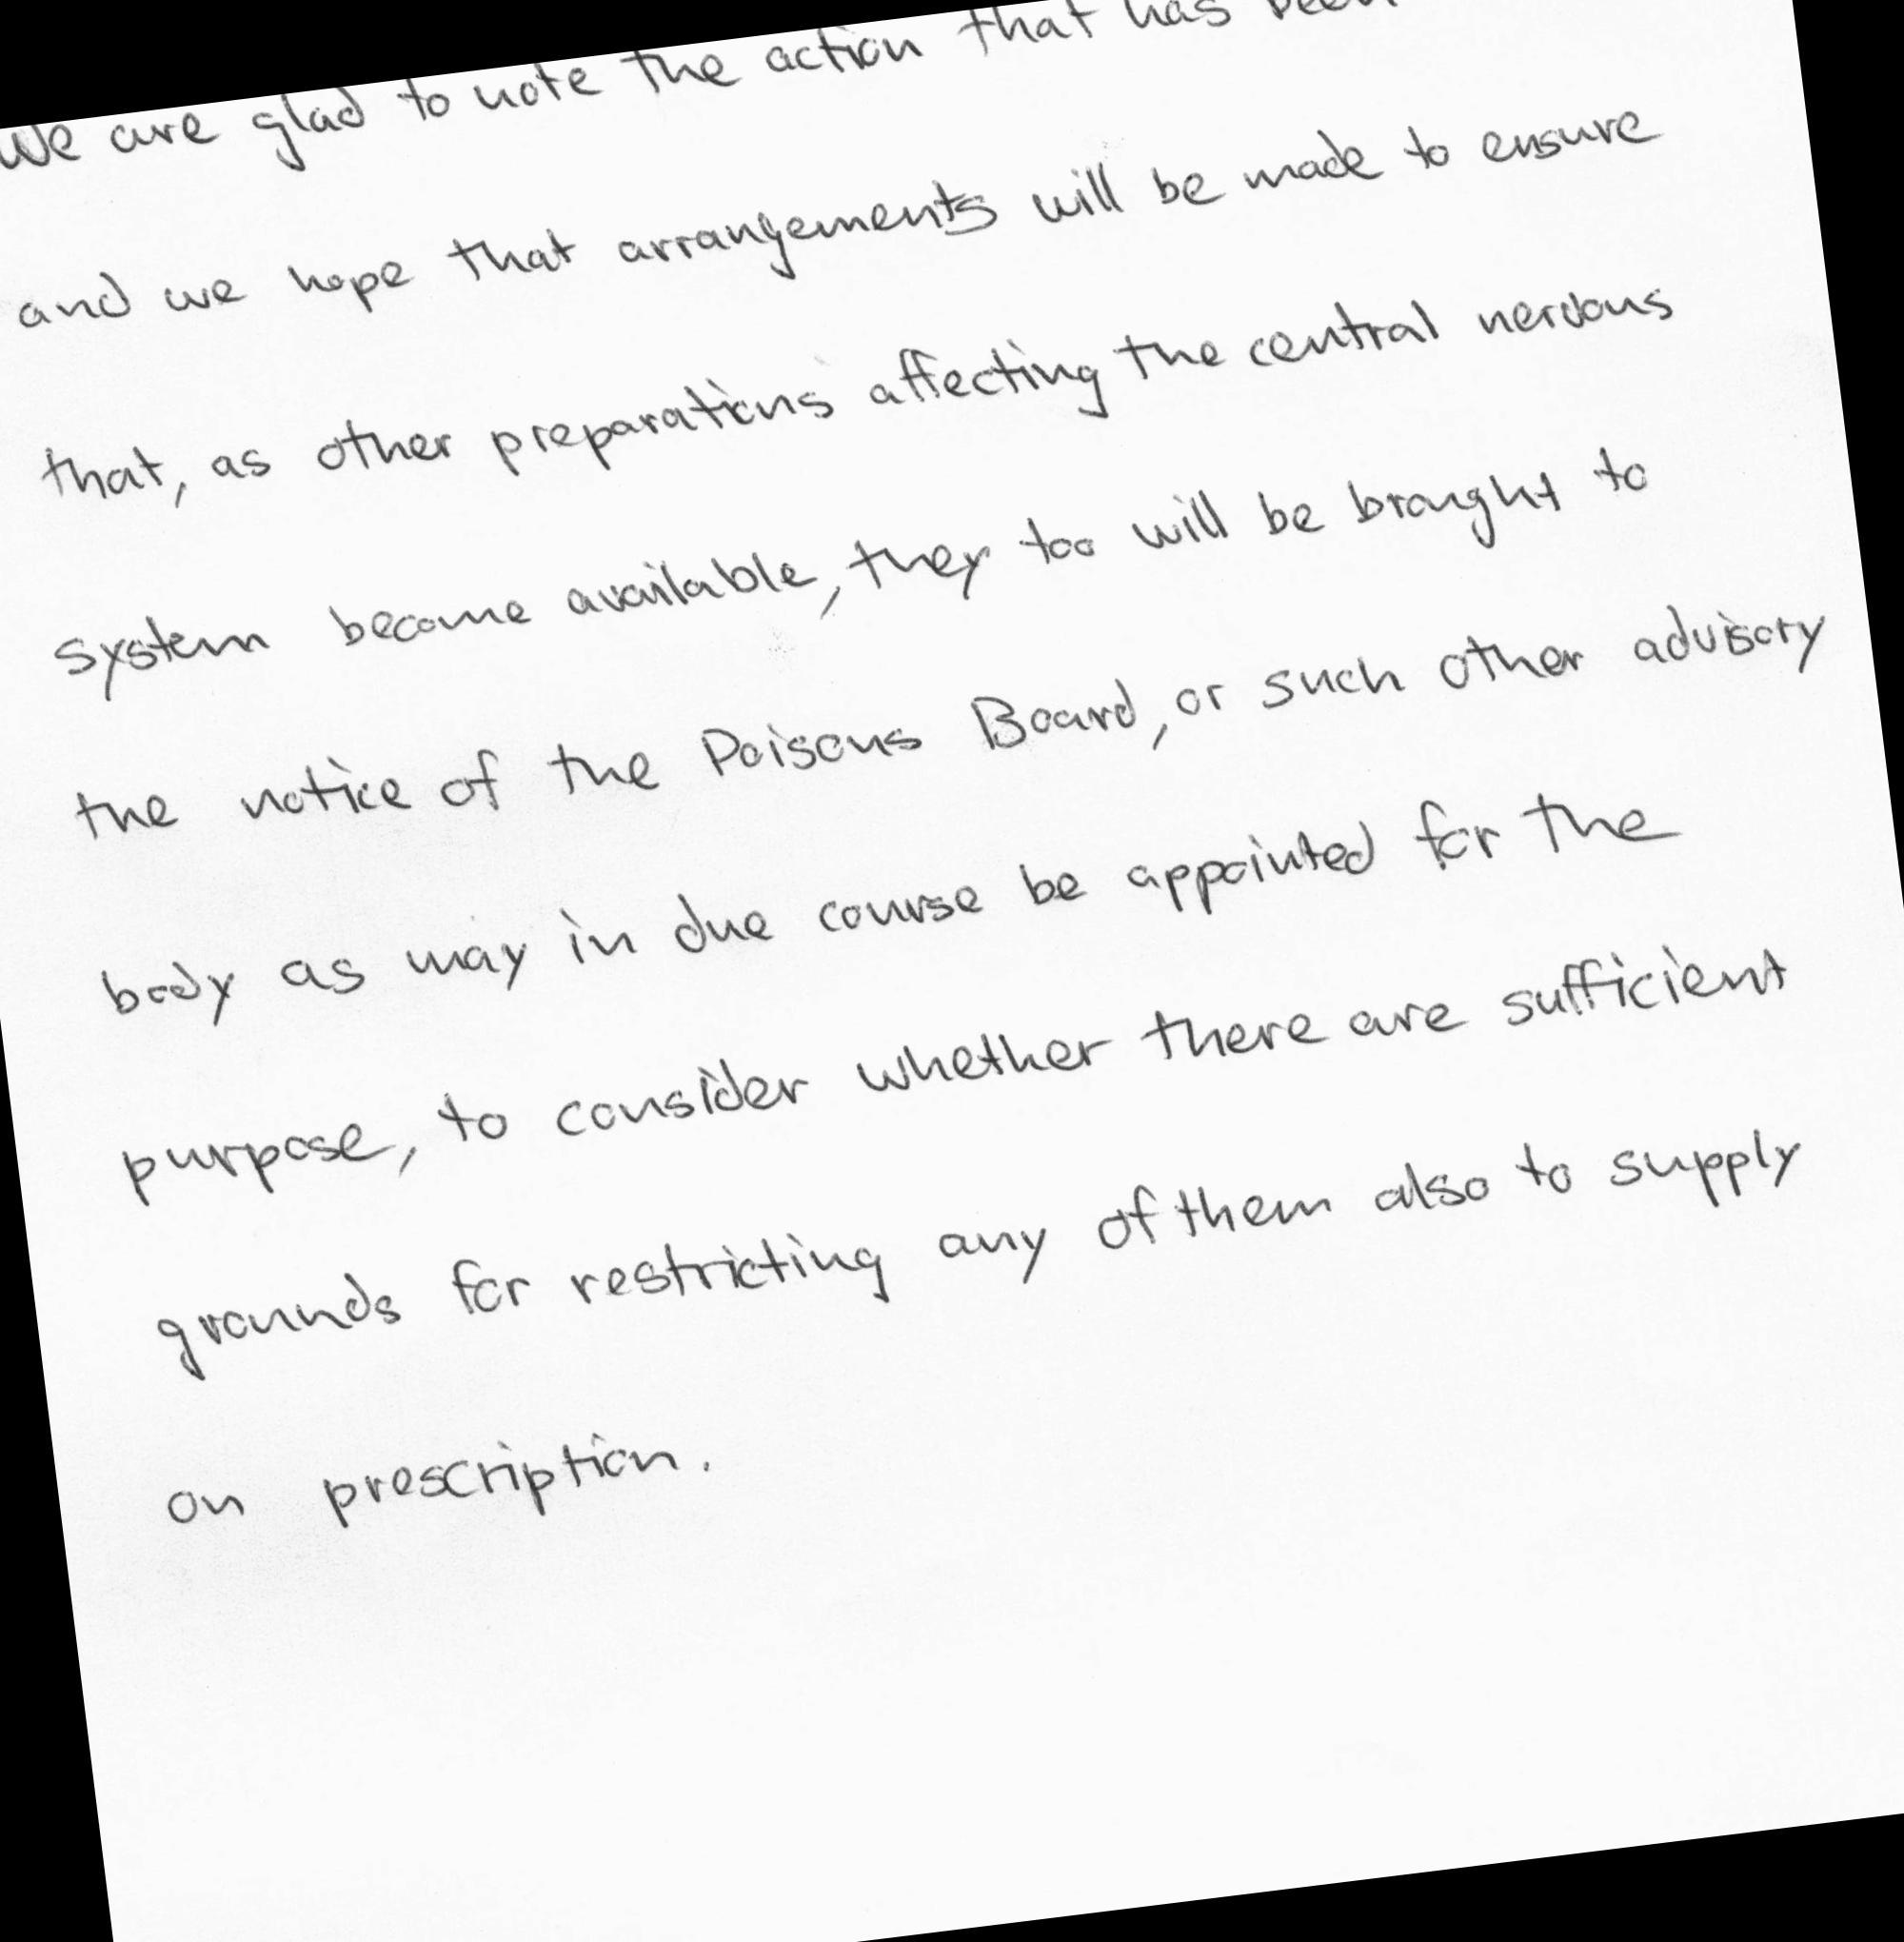 We are glad to note the action that has been
and we hope that arrangements will be made to ensure
that, as other preparations affecting the central nervous
system become available, they too will be brought to
the notice of the Poisons Board, or such other advisory
body as may in due course be appointed for the
purpose, to consider whether there are sufficient
grounds for restricting any of them also to supply
on prescription.